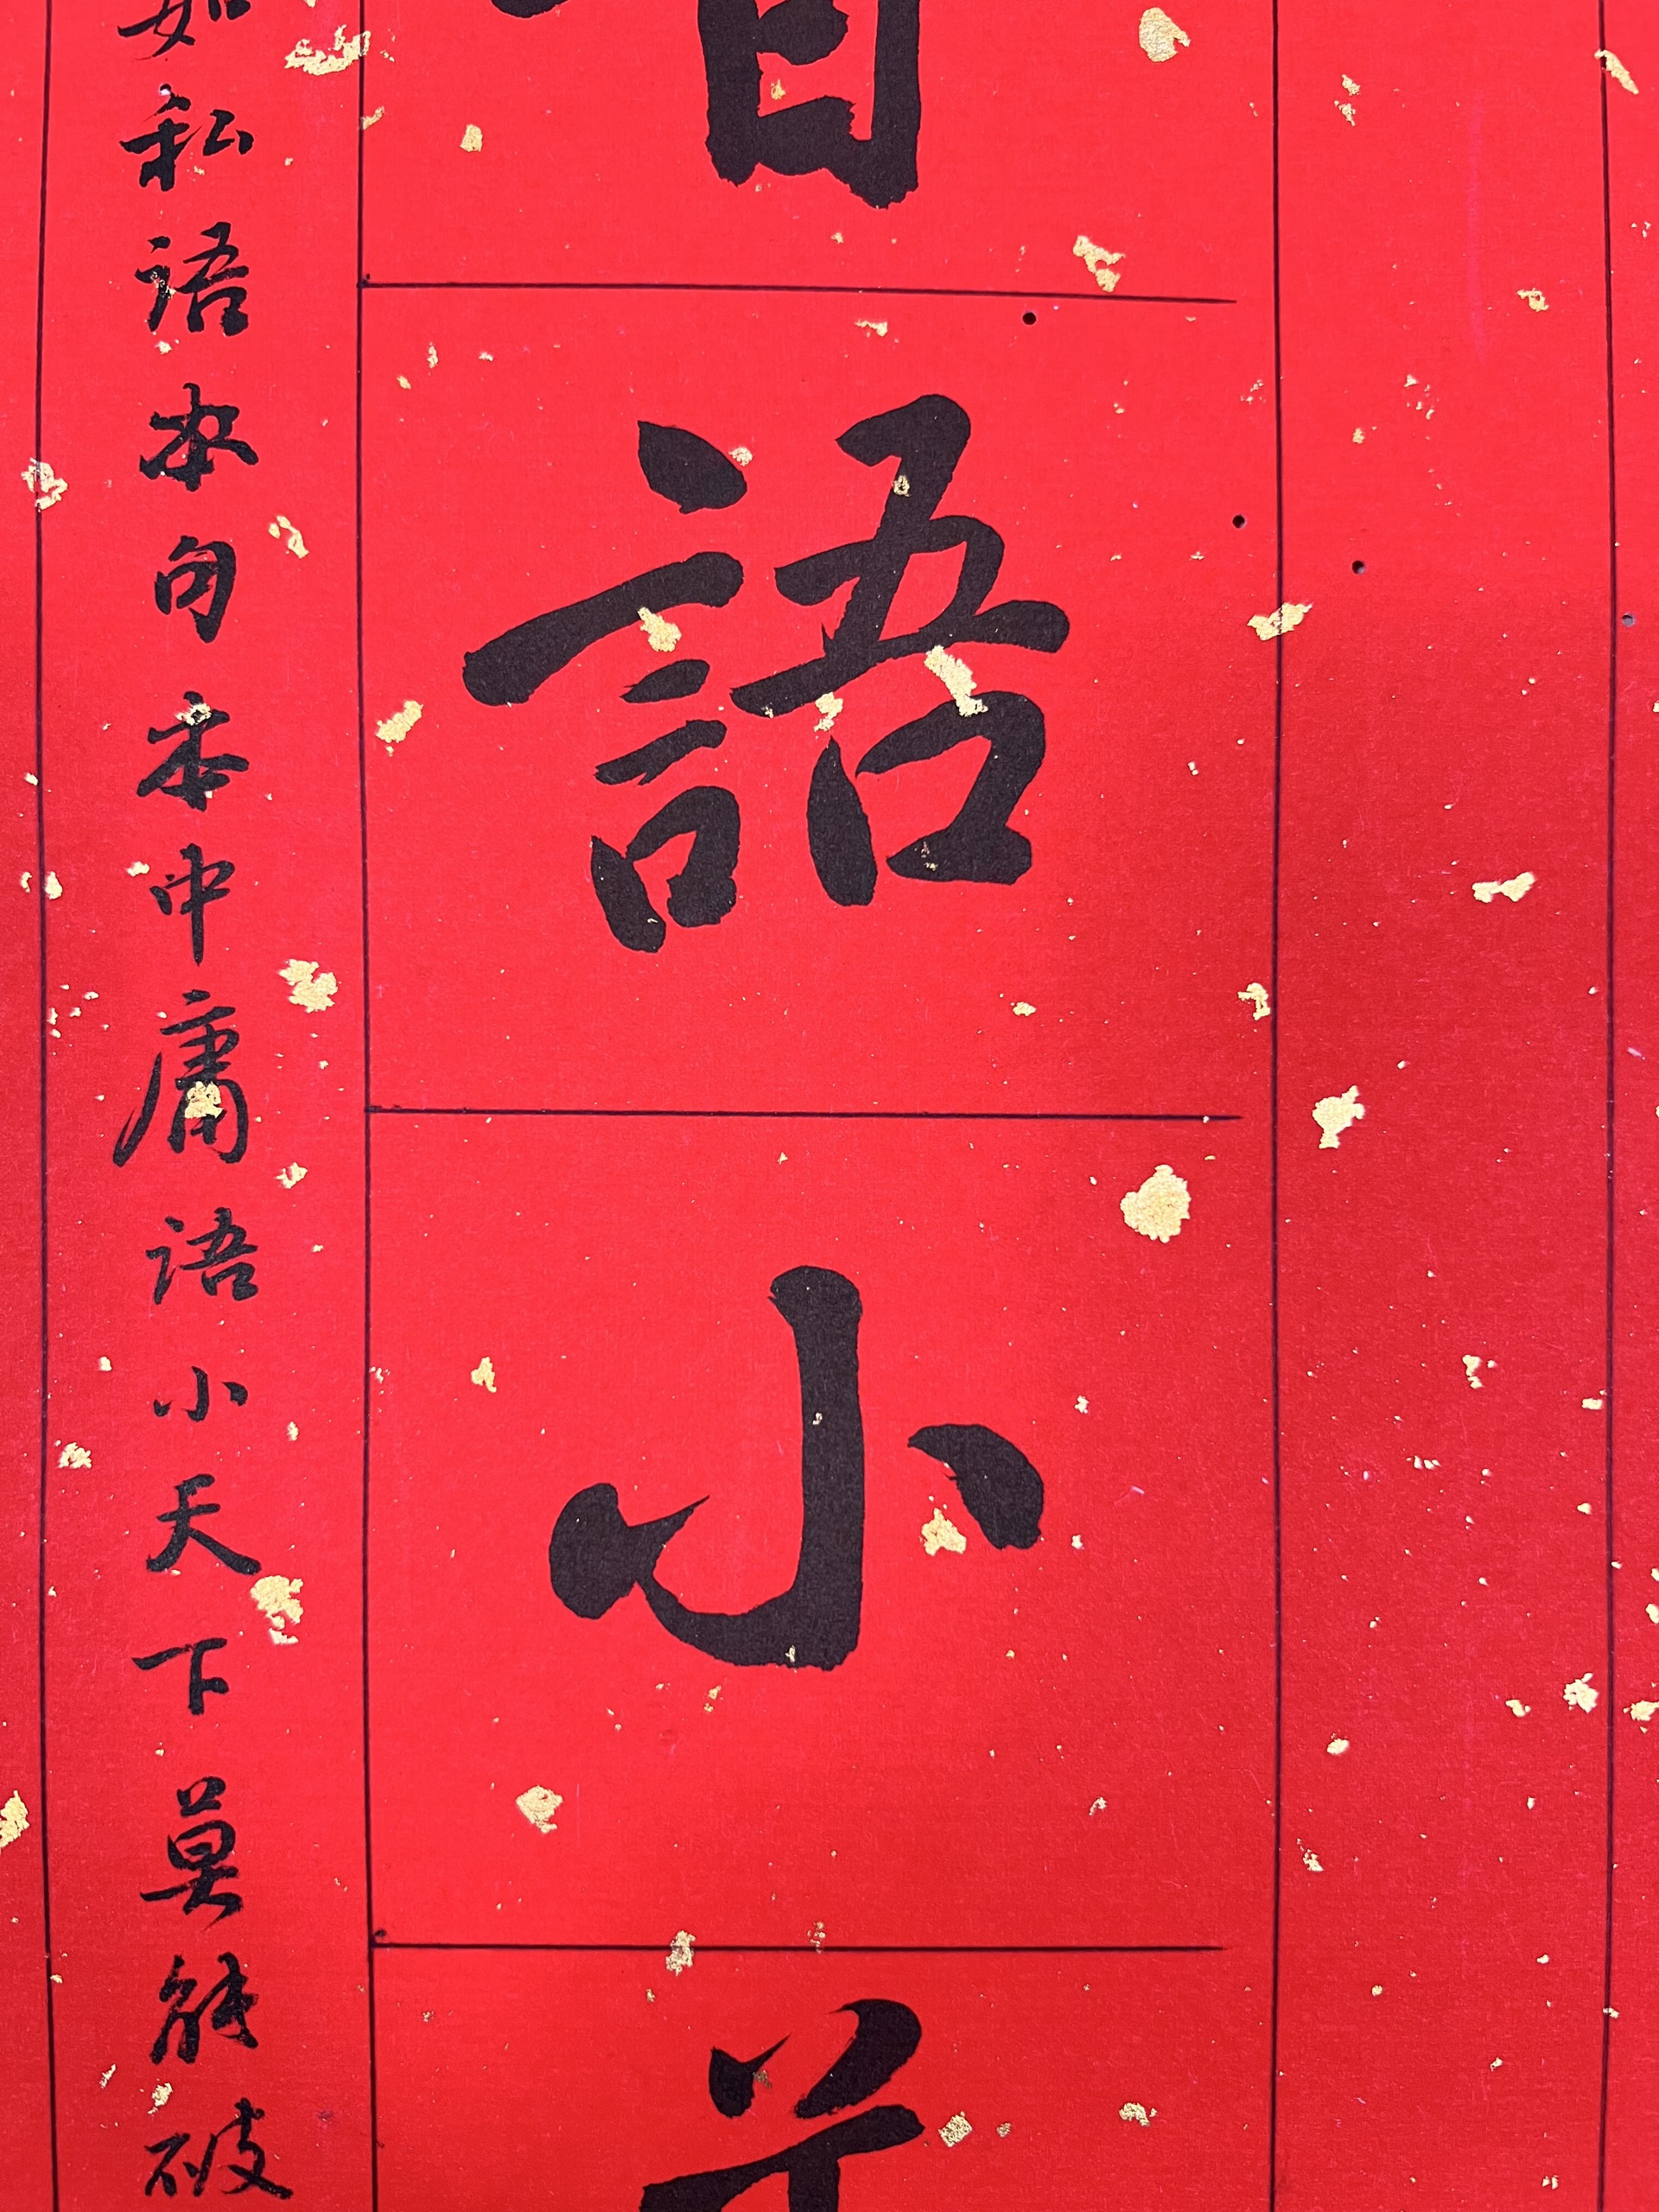 語小
如私语本句本中庸语小天下莫能破